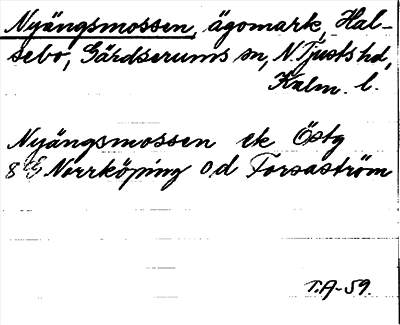 Nyängsmossen, ägomark, Hal-
sebo, Gärdserums sn, N. Tjusts hd,
Kalm. l.
Nyängsmossen ek Östg
8 Norrköping Od Forsaström
T.A-59.